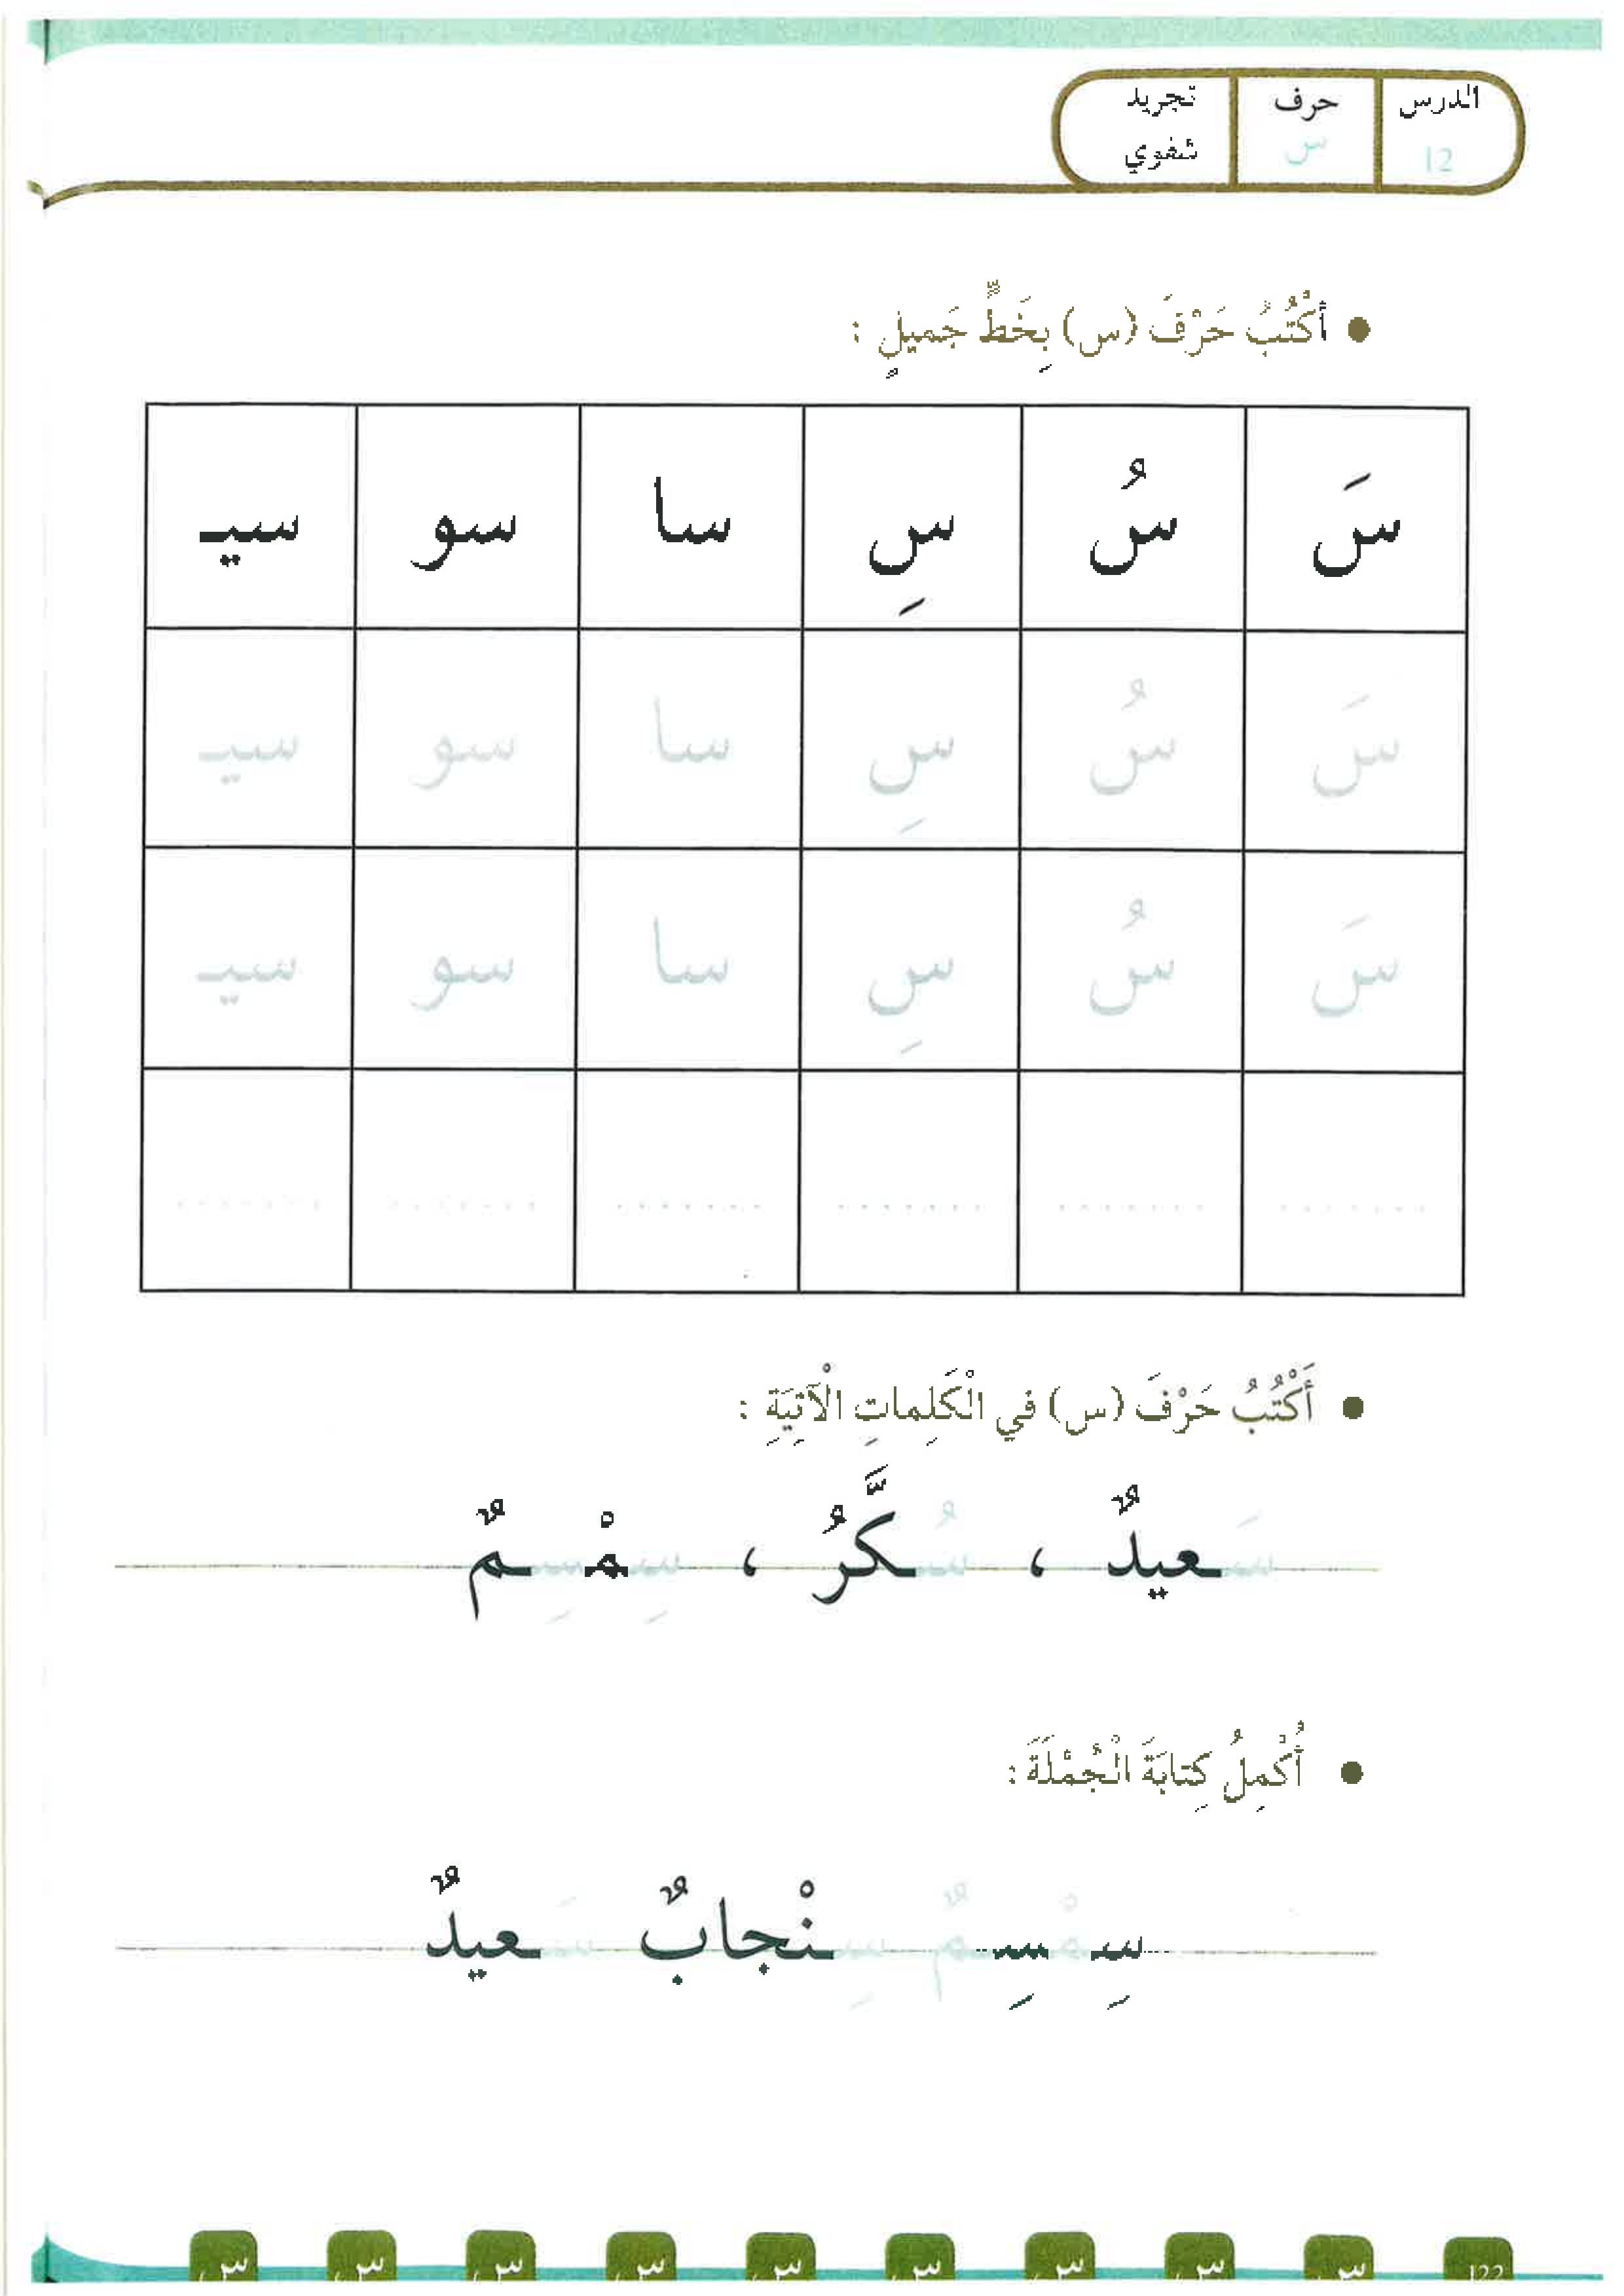 الدرس حرف تجريد
12 س شفوي
• أكْتُبُ حَرْفَ (س) بِخَطٍّ جَميلٍ :
سَ سُ سِ سا سو سيـ
سَ سُ سِ سا سو سيـ
سَ سُ سِ سا سو سيـ
• أَكْتُبُ حَرْفَ (س) في الْكَلِماتِ الْآتِيَةِ :
سَعيدٌ ، سُكَّرُ ، سِمْسِمٌ
• أُكْمِلُ كِتابَةَ الْجُمْلَةَ :
سِـ سِـ مْسِمٌ سِنْجابٌ سَعيدٌ
122 س س س س س س س س س